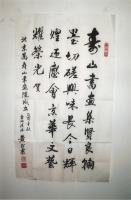 壽山書畫集賢良翰
墨切磋興味長今日輝
煌迎盛會京華文藝
耀榮光 賀
北京萬壽山書畫院成立